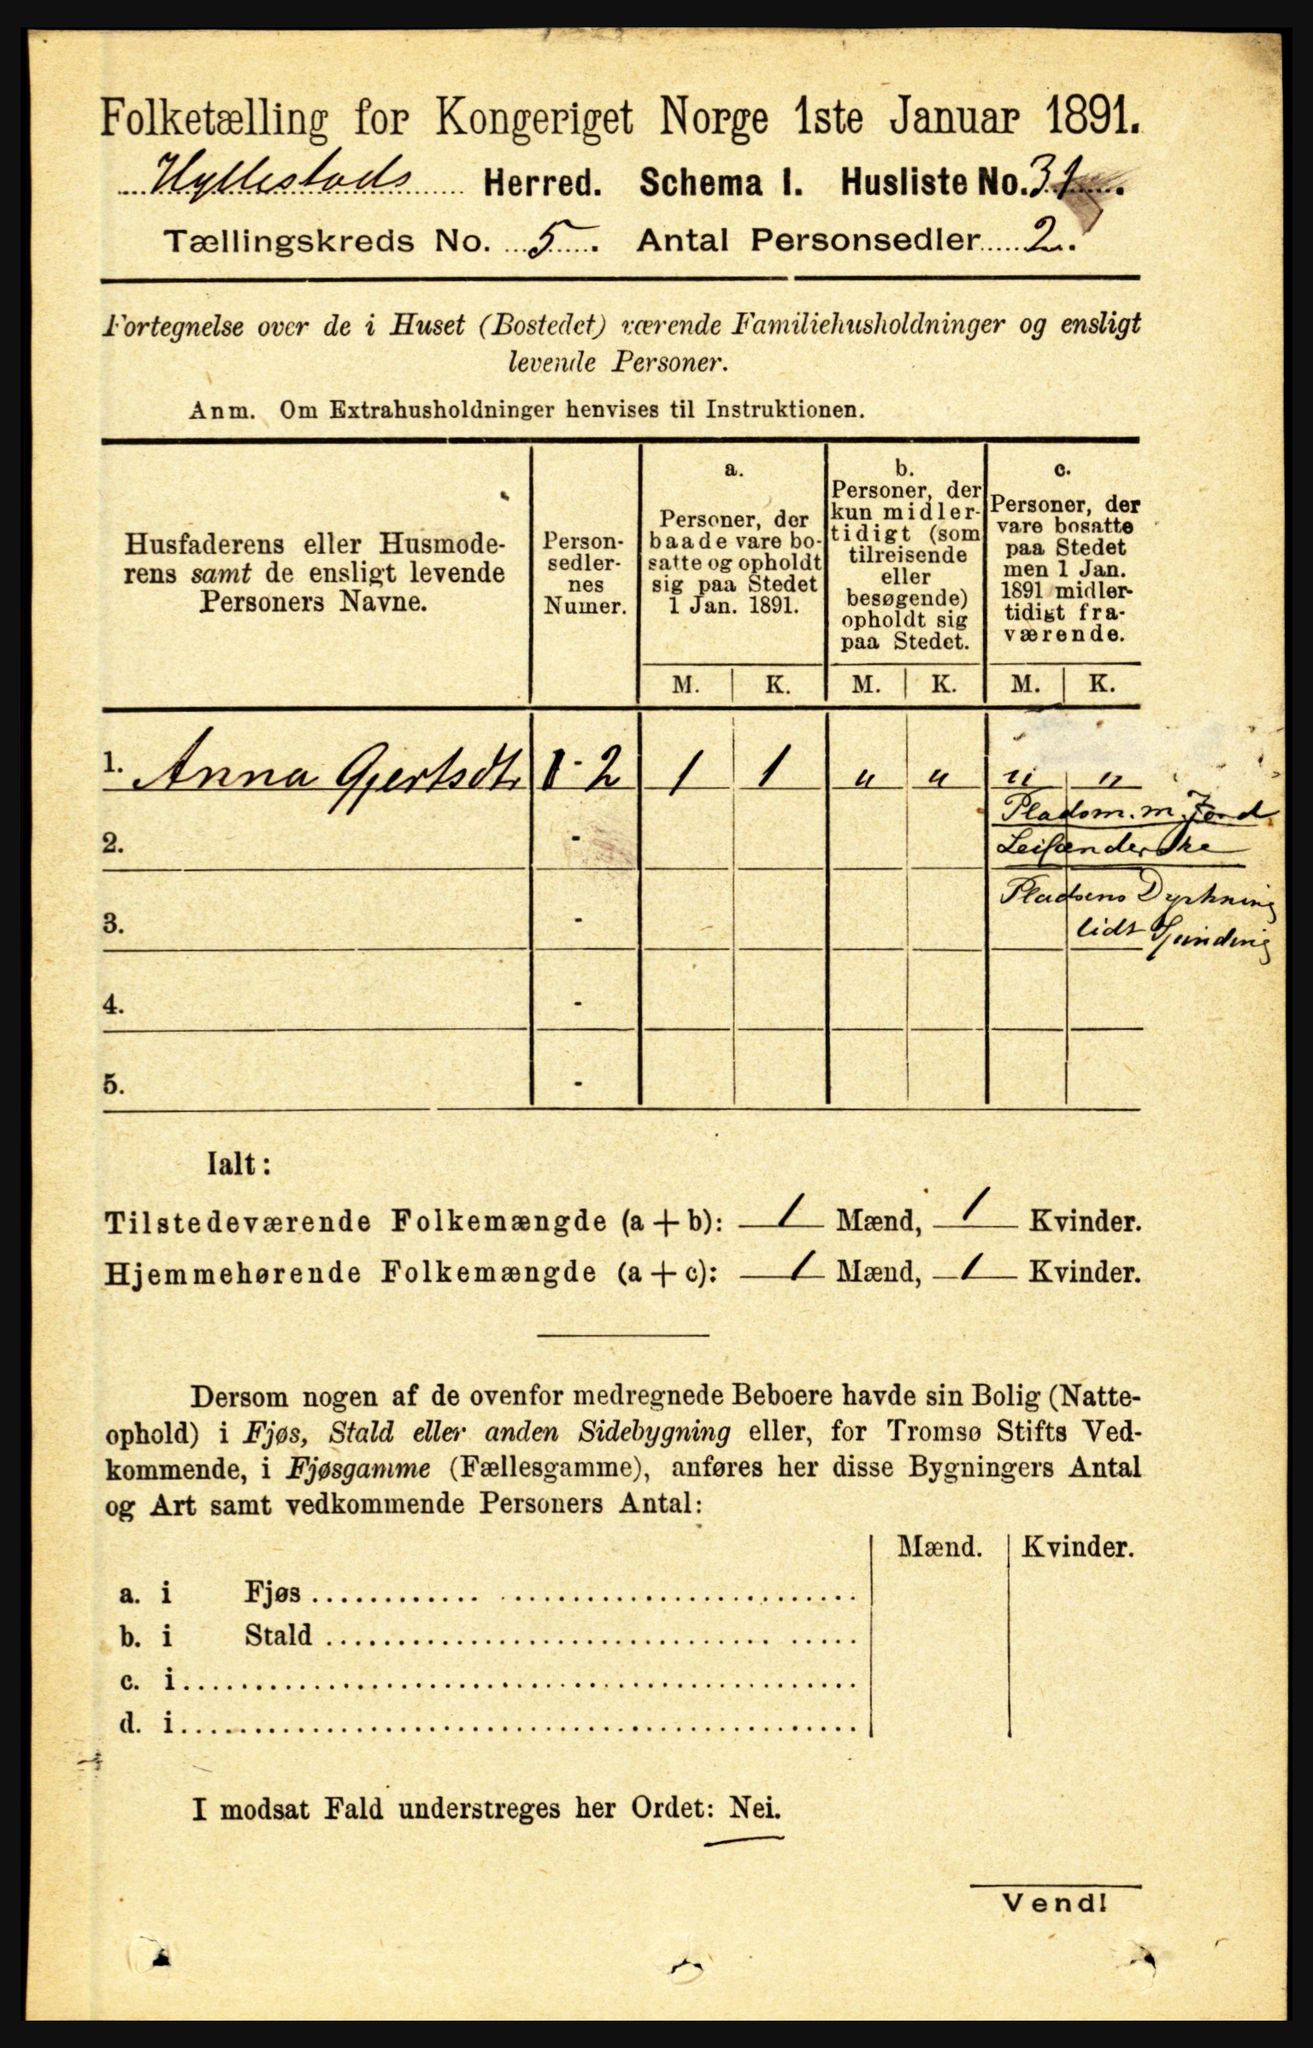 Folketælling for Kongeriget Norge 1ste Januar 1891.
Hyllestads Herred. Schema I. Husliste No. 31.
Tællingskreds No. 5. Antal Personsedler 2.
Fortegnelse over de i Huset (Bostedet) værende Familiehusholdninger og ensligt
levende Personer.
Anm. Om Extrahusholdninger henvises til Instruktionen.
Husfaderens eller Husmode-
rens samt de ensligt levende
Personers Navne.
Person-
sedler-
nes
Numer.
a.
Personer, der
baade vare bo-
satte og opholdt
sig paa Stedet
1 Jan. 1891.
b.
Personer, der
kun midler-
tidigt (som
tilreisende
eller
besøgende)
opholdt sig
paa Stedet.
c.
Personer, der
vare bosatte
paa Stedet
men 1 Jan.
1891 midler-
tidigt fra-
værende.
M. K. M. K. M. K.
1. Anna Gjertsdt. 1 - 2 1 1 " " " "
Pladsm. m. Jord
2. -
Leilænderske
3. -
Pladsens Dyrkning
lidt
4. -
5. -
Ialt:
Tilstedeværende Folkemængde (a + b): 1 Mænd, 1 Kvinder.
Hjemmehørende Folkemængde (a + c): 1 Mænd, 1 Kvinder.
Dersom nogen af de ovenfor medregnede Beboere havde sin Bolig (Natte-
ophold) i Fjøs, Stald eller anden Sidebygning eller, for Tromsø Stifts Ved-
kommende, i Fjøsgamme (Fællesgamme), anføres her disse Bygningers Antal
og Art samt vedkommende Personers Antal:
Mænd. Kvinder.
a. i Fjøs
b. i Stald
c. i
d. i
I modsat Fald understreges her Ordet: Nei.
Vend!